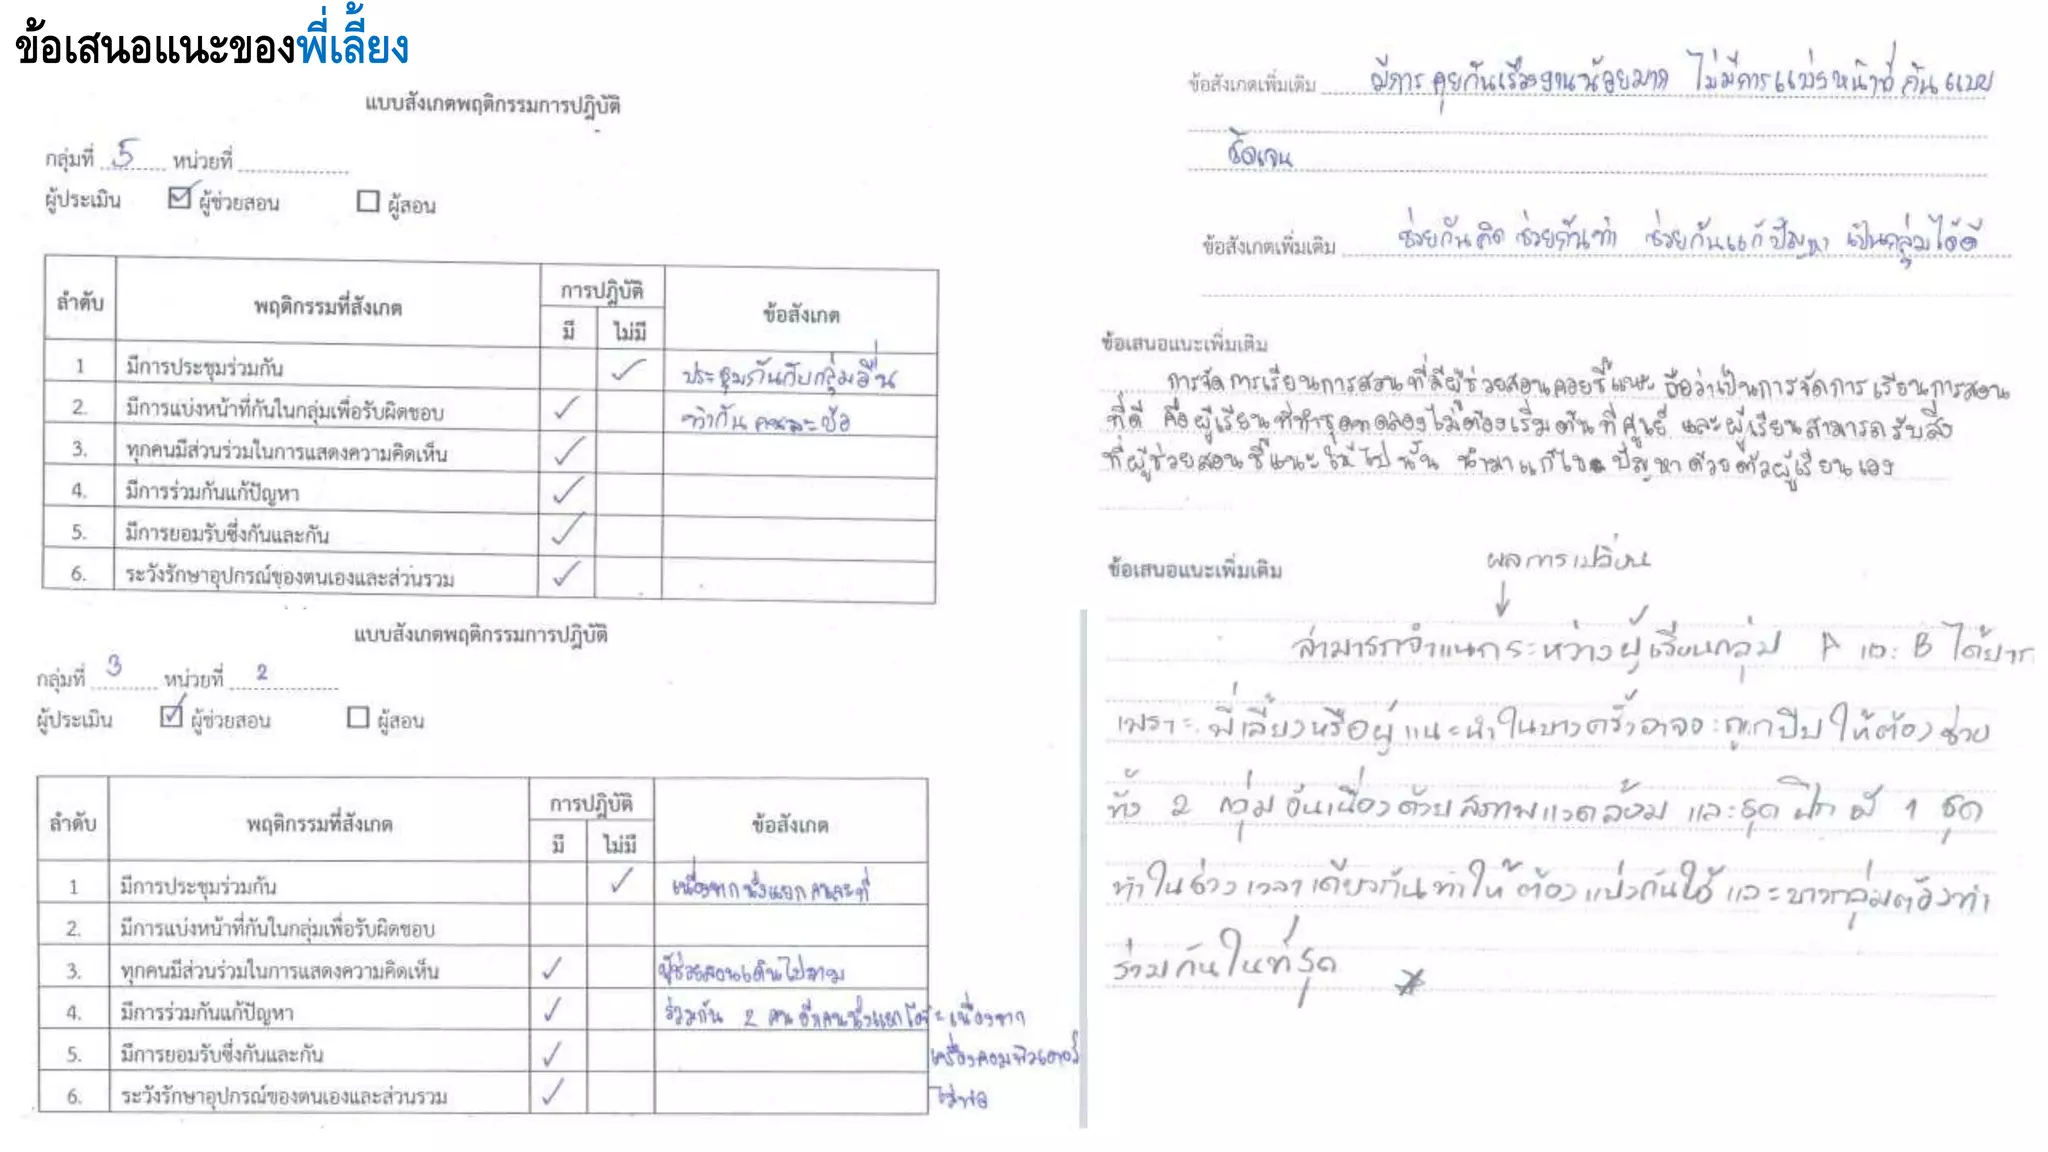 ข้อเสนอแนะของพี่เลี้ยง
แบบสังเกตพฤติกรรมการปฏิบัติ
กลุ่มที่ 5 หน่วยที่
ผู้ประเมิน ☑ ผู้ช่วยสอน ☐ ผู้สอน
ลำดับ พฤติกรรมที่สังเกต การปฏิบัติ ข้อสังเกต
มี ไม่มี
1 มีการประชุมร่วมกัน ✓ ประชุมกันกับกลุ่มอื่น
2. มีการแบ่งหน้าที่กันในกลุ่มเพื่อรับผิดชอบ ✓ ทำกันคนละข้อ
3. ทุกคนมีส่วนร่วมในการแสดงความคิดเห็น ✓
4. มีการร่วมกันแก้ปัญหา ✓
5. มีการยอมรับซึ่งกันและกัน ✓
6. ระวังรักษาอุปกรณ์ของตนเองและส่วนรวม ✓
แบบสังเกตพฤติกรรมการปฏิบัติ
กลุ่มที่ 3 หน่วยที่ 2
ผู้ประเมิน ☑ ผู้ช่วยสอน ☐ ผู้สอน
ลำดับ พฤติกรรมที่สังเกต การปฏิบัติ ข้อสังเกต
มี ไม่มี
1 มีการประชุมร่วมกัน ✓ เนื่องจากนั่งแยกคนละที่
2. มีการแบ่งหน้าที่กันในกลุ่มเพื่อรับผิดชอบ
3. ทุกคนมีส่วนร่วมในการแสดงความคิดเห็น ✓ ผู้ช่วยสอนเดินไปถาม
4. มีการร่วมกันแก้ปัญหา ✓ ร่วมกัน 2 คน อีกคนนั่งแยกโต๊ะเนื่องจาก
5. มีการยอมรับซึ่งกันและกัน ✓ เครื่องคอมพิวเตอร์
6. ระวังรักษาอุปกรณ์ของตนเองและส่วนรวม ✓ ไม่พอ
ข้อสังเกตเพิ่มเติม มีการคุยกันเรื่องงานน้อยมาก ไม่มีการแบ่งหน้าที่กันแบบ
ชัดเจน
ข้อสังเกตเพิ่มเติม ช่วยกันคิด ช่วยกันทำ ช่วยกันแก้ปัญหา เป็นกลุ่มได้ดี
ข้อเสนอแนะเพิ่มเติม
การจัดการเรียนการสอนที่มีผู้ช่วยสอนคอยชี้แนะ ถือว่าเป็นการจัดการเรียนการสอน
ที่ดี คือผู้เรียนที่ทำชุดทดลองไม่ต้องเริ่มต้นที่ศูนย์ และผู้เรียนสามารถรับสิ่ง
ที่ผู้ช่วยสอนชี้แนะให้ไปนั้น นำมาแก้ไขปัญหาด้วยตัวผู้เรียนเอง
ข้อเสนอแนะเพิ่มเติม ผลการเปลี่ยน
↓
สามารถจำแนกระหว่างผู้เรียนกลุ่ม A และ B ได้ยาก
เพราะ พี่เลี้ยงหรือผู้แนะนำในบางครั้งอาจจะถูกบีบให้ต้องช่วย
ทั้ง 2 กลุ่ม อันเนื่องด้วยสภาพแวดล้อม และชุดฝึกมี 1 ชุด
ทำในช่วงเวลาเดียวกันทำให้ต้องแบ่งกันใช้ และบางกลุ่มต้องทำ
ร่วมกันในที่สุด